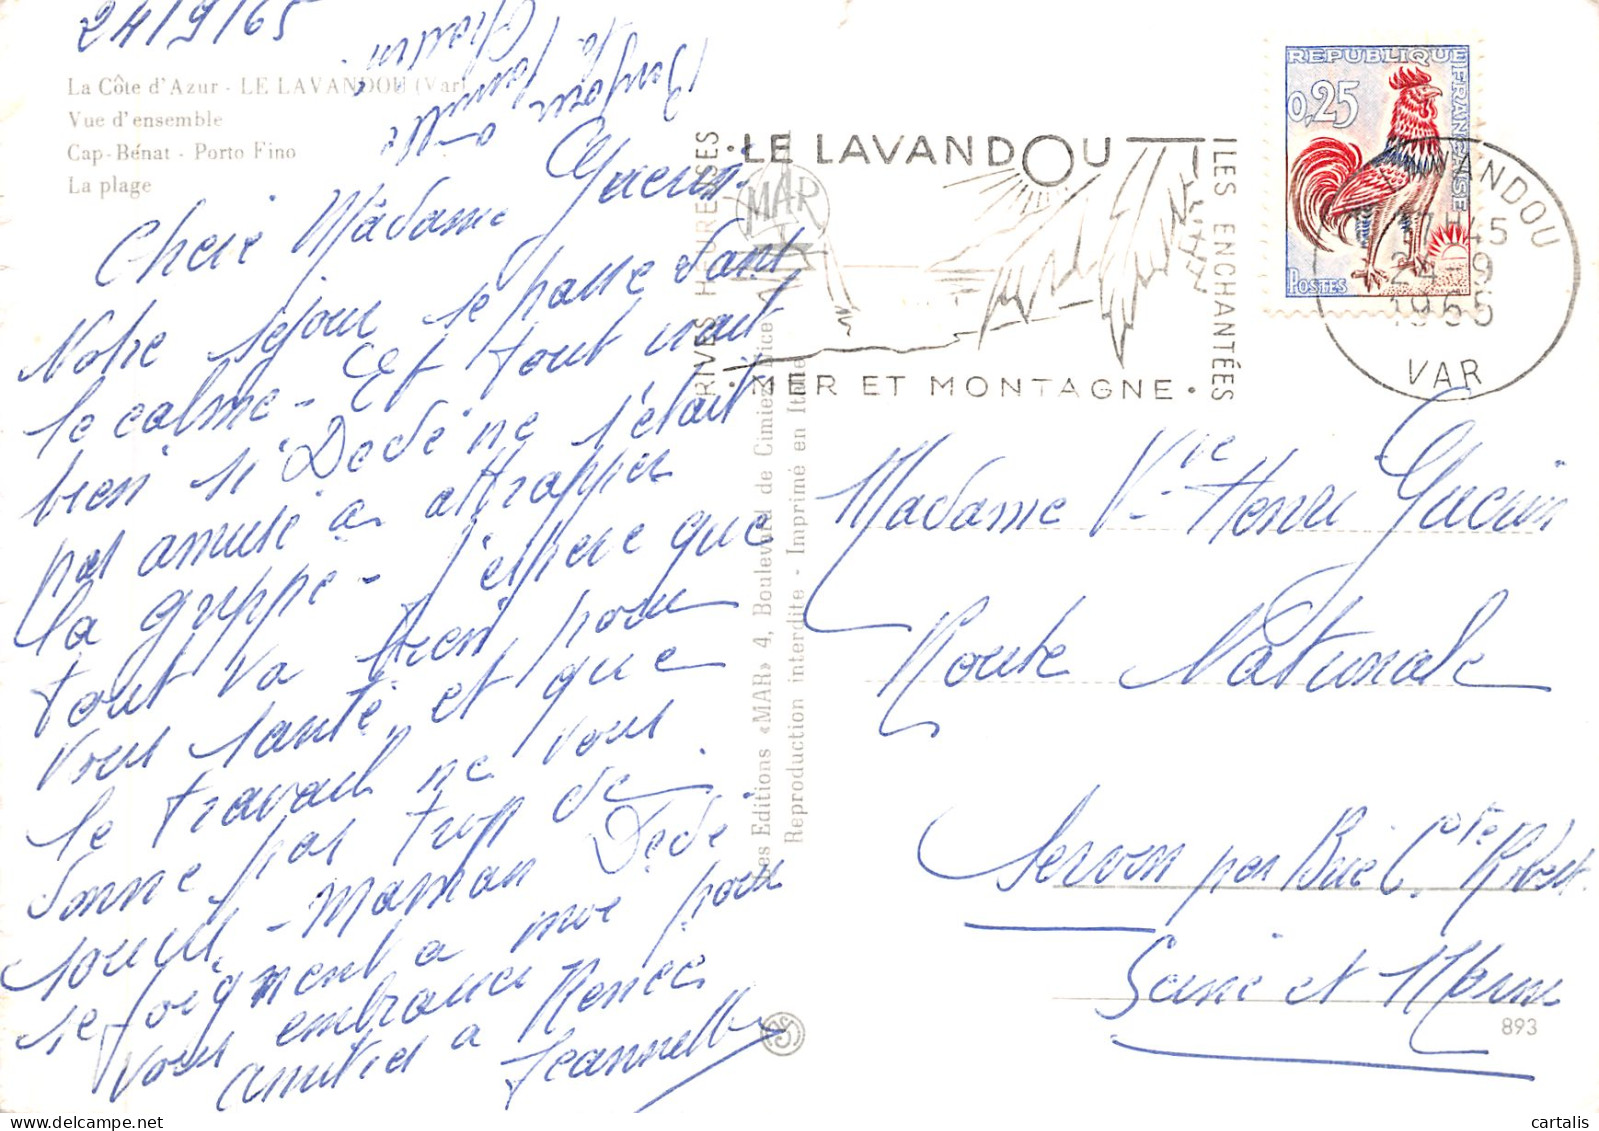 24/9/65
La Côte d'Azur - LE LAVANDOU (Var)
Vue d'ensemble
Cap-Bénat - Porto Fino
La plage
Bonjour
à la famille
Chere Madame Guerin.
Notre séjour se passe dant
le calme - Et tout irait
bien si Dédé ne s'était
pas amusé a attrapper
la grippe - J'espere que
tout va bien pour
vous santé, et que
le travail ne vous
donne pas trop de
soucis - Maman Dédé
se joignent a moi pour
vous embrasser
amitiés a Renée
Jeannette
Les Editions «MAR» 4, Boulevard de Cimiez Nice
Reproduction interdite - Imprimé en Italie
MAR
RIVES HEUREUSES
LE LAVANDOU
MER ET MONTAGNE
ILES ENCHANTÉES
REPUBLIQUE FRANÇAISE
0,25
POSTES
LE LAVANDOU
17H45
24-9
1965
VAR
Madame Vve Henri Guerin
Route Nationale
Servon par Brie Cote Robert
Seine et Marne
893
cartalis